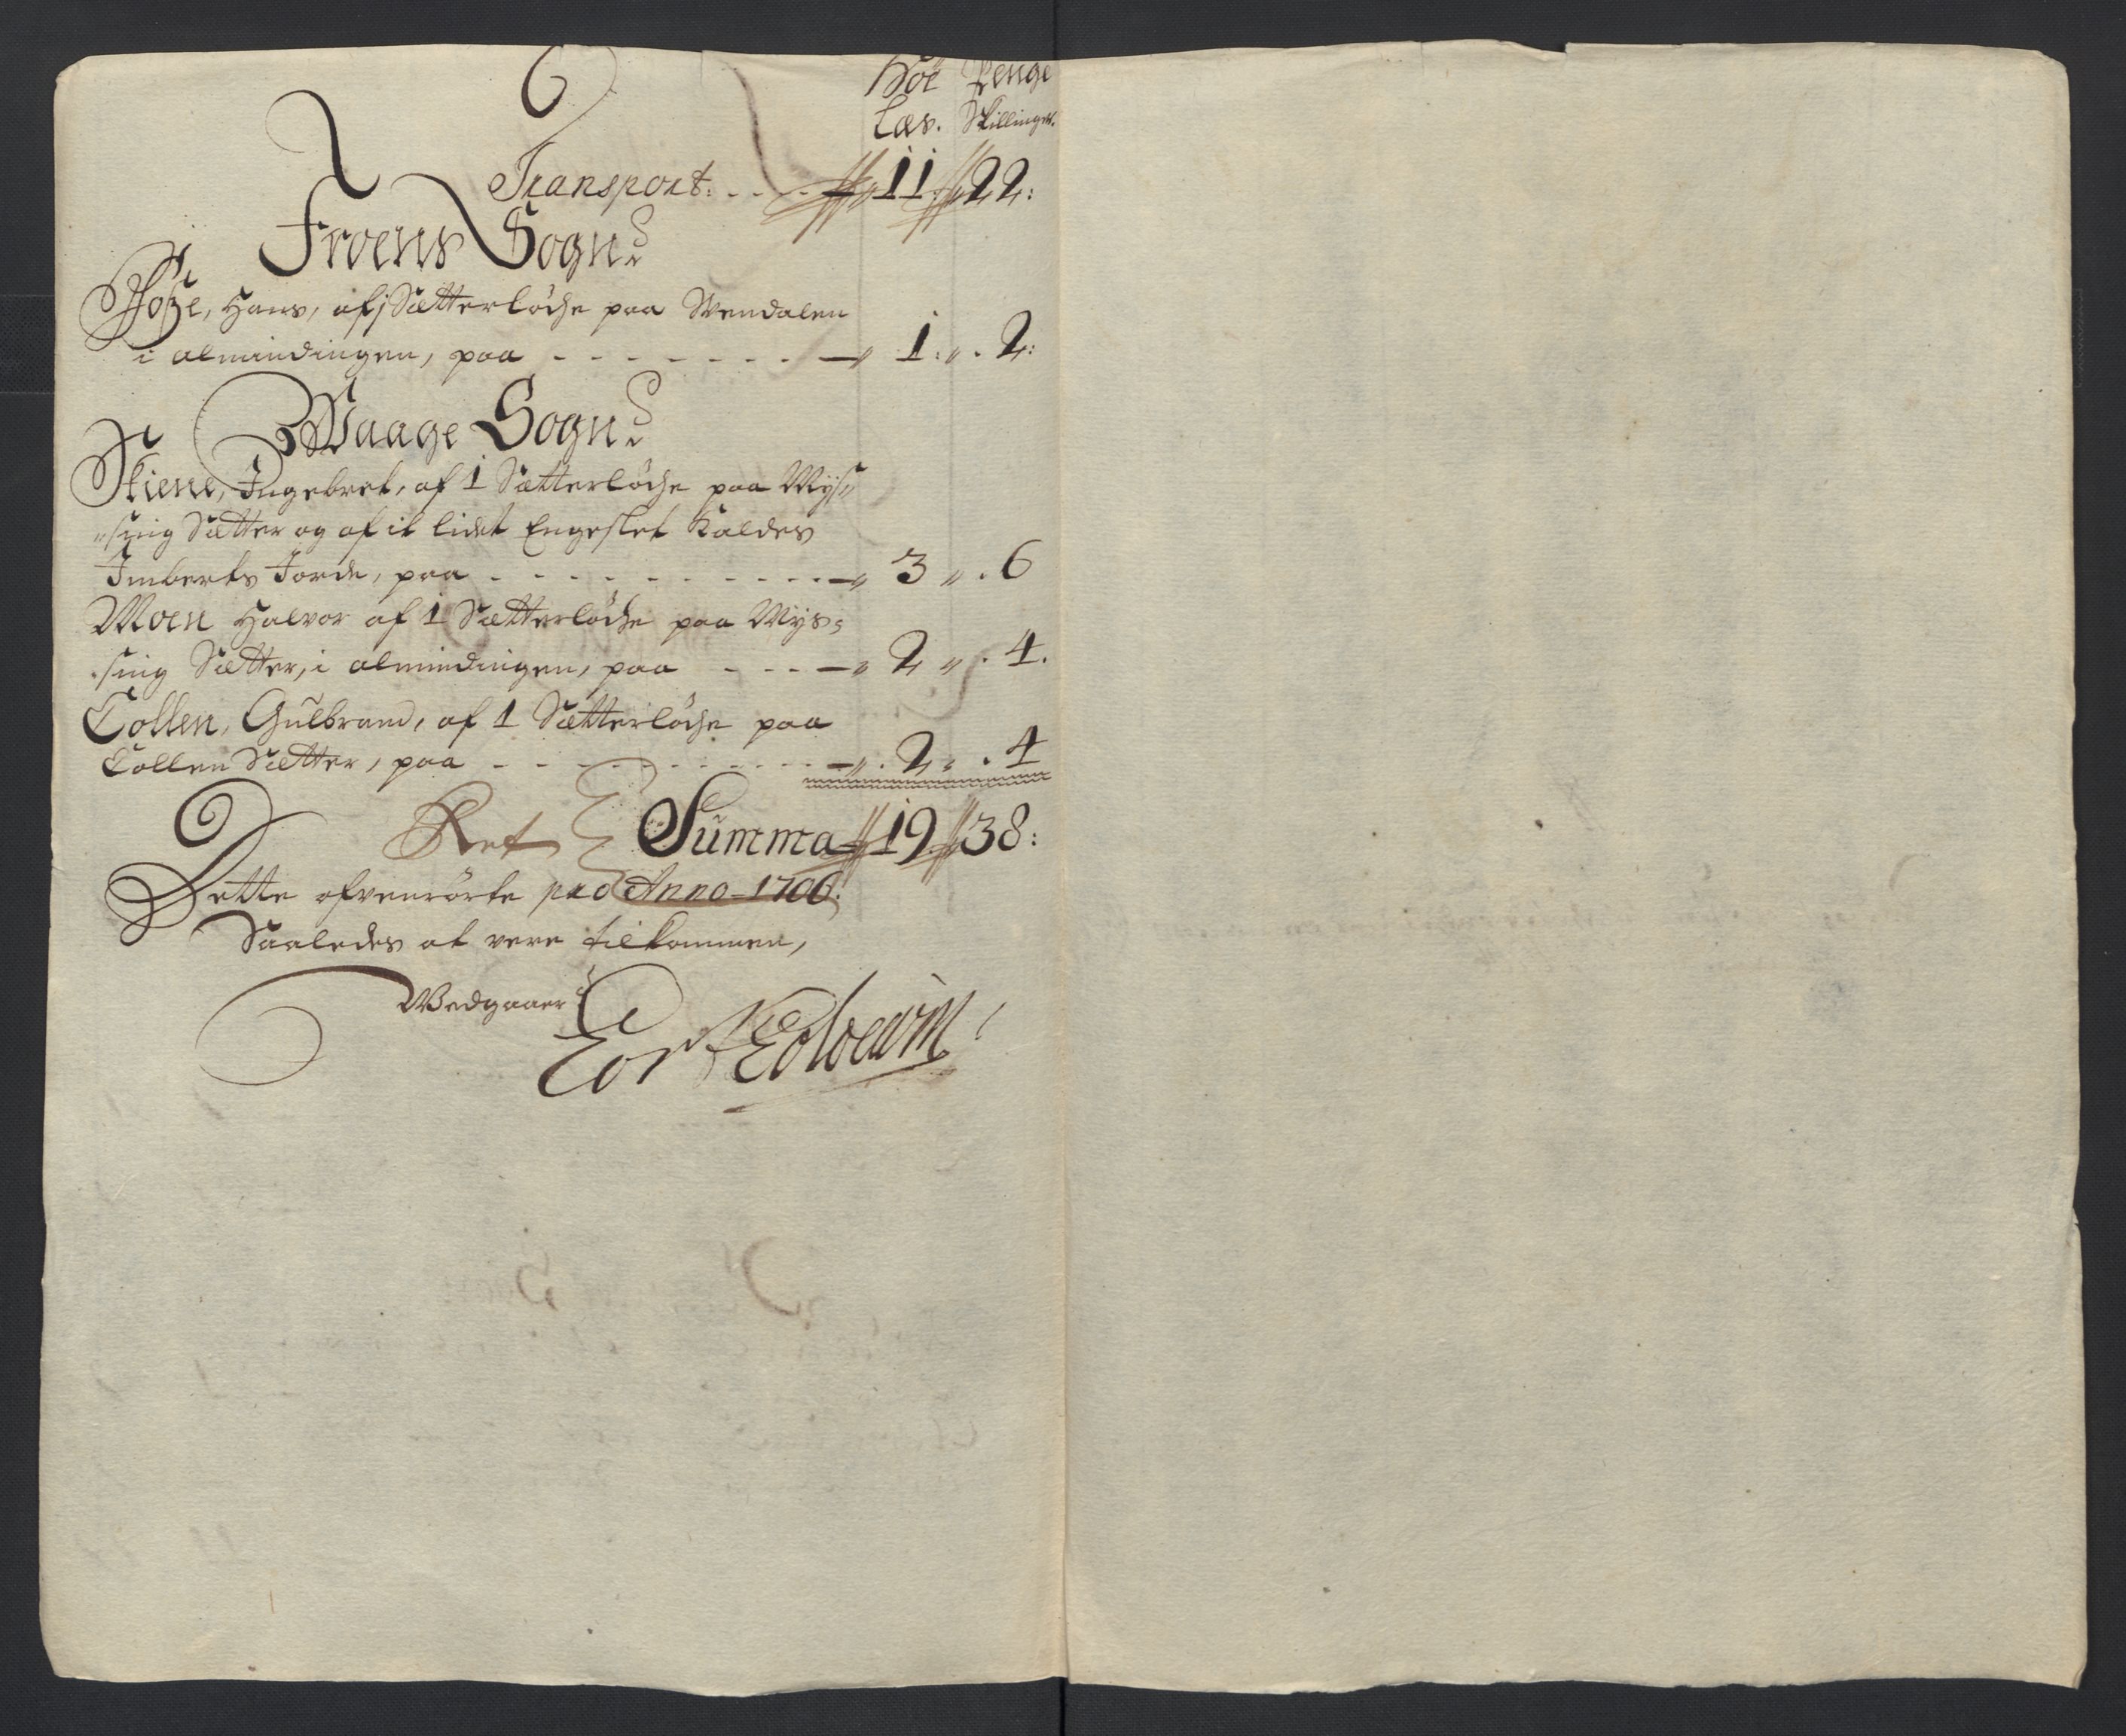 Höe Penge
Læs. Skillinger.
Transport: 11 22:
Froens Sogn
Hans, af 1 Sætterløche paa Svendalen
i almindingen, paa 1: 2:
Waage Sogn
Skiene, Ingebret, af 1 Sætterløche paa Mys
sing Sætter og af it lidet Engeslet kaldes
Imberts Jorde, paa 3 6
Moen Halvor af 1 Sætterløche paa Mys
sing Sætter, i almindingen, paa 2 4.
Kollen, Gulbrand, af 1 Sætterløche paa
Kollen Sætter, paa 2 4
Ret Summa 19 38:
Dette ofvenrørte pro Anno 1706.
Saaledes at vere tilkommen,
Vedgaaer